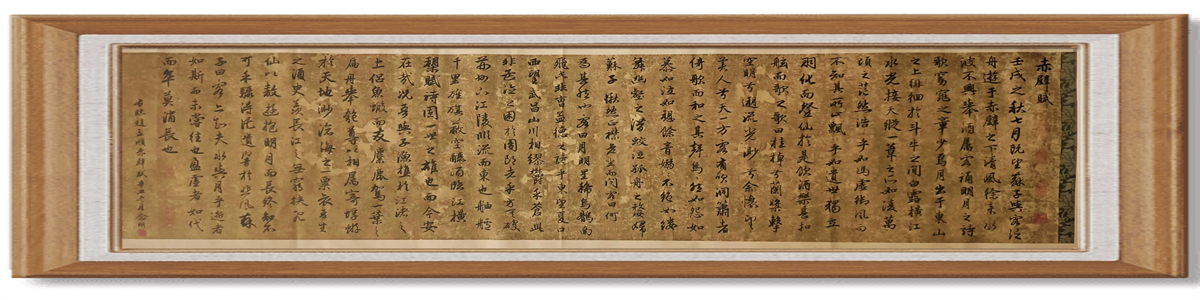 赤壁賦
壬戌之秋七月既望蘇子與客泛
舟遊于赤壁之下清風徐来水
波不興舉酒屬客誦明月之詩
歌窈窕之章少焉月出于東山
之上徘徊於斗牛之間白露横江
水光接天縱一葦之所如淩萬
頃之茫然浩乎如馮虚御風而
不知其所止飄乎如遺世獨立
羽化而登仙於是飲酒樂甚扣
舷而歌之歌曰桂棹兮蘭槳擊
空明兮溯流光渺兮余懷望
美人兮天一方客有吹洞簫者
倚歌而和之其聲嗚然如怨如
慕如泣如訴餘音嫋不絶如縷
舞幽壑之潛蛟泣孤舟之嫠婦
蘇子愀然正襟危坐而問客曰何
為其然也客曰月明星稀烏鵲南
飛此非曹孟德之詩乎東望夏口
西望武昌山川相繆鬱乎蒼此
非孟德之困於周郎者乎方其破
荊州下江陵順流而東也舳艫
千里旌旗蔽空釃酒臨江橫
槊賦詩固一世之雄也而今安
在哉況吾與子漁樵於江渚之
上侶魚蝦而友麋鹿駕一葉之
扁舟舉匏尊以相屬寄蜉蝣
於天地渺滄海之一粟哀吾生
之須臾羨長江之無窮挾飛
仙以遨遊抱明月而長終知不
可乎驟得託遺響於悲風蘇
子曰客亦知夫水與月乎逝者
如斯而未嘗往也盈虚者如代
而卒莫消長也